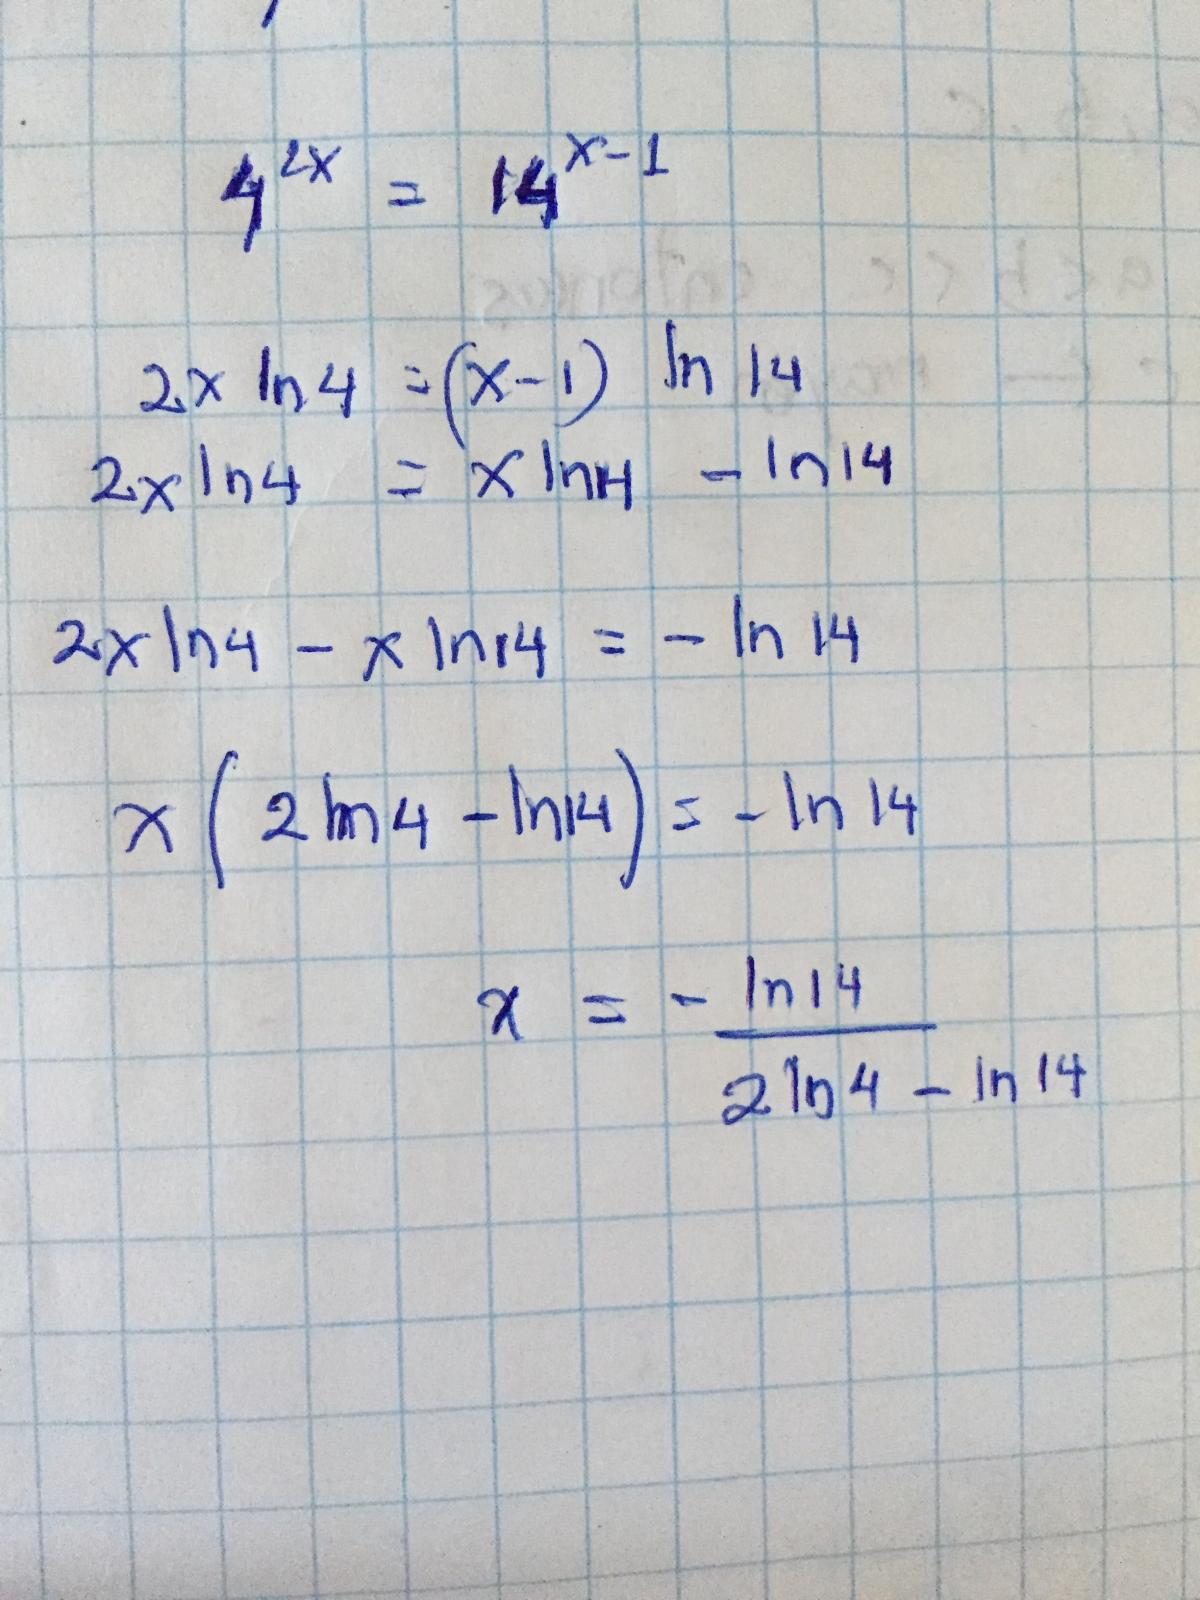 4^{2x} = 14^{x-1}
2x ln 4 = (x-1) ln 14
2x ln 4 = x ln 14 - ln 14
2x ln 4 - x ln 14 = - ln 14
x ( 2 ln 4 - ln 14 ) = - ln 14
x = - \frac{ln 14}{2 ln 4 - ln 14}